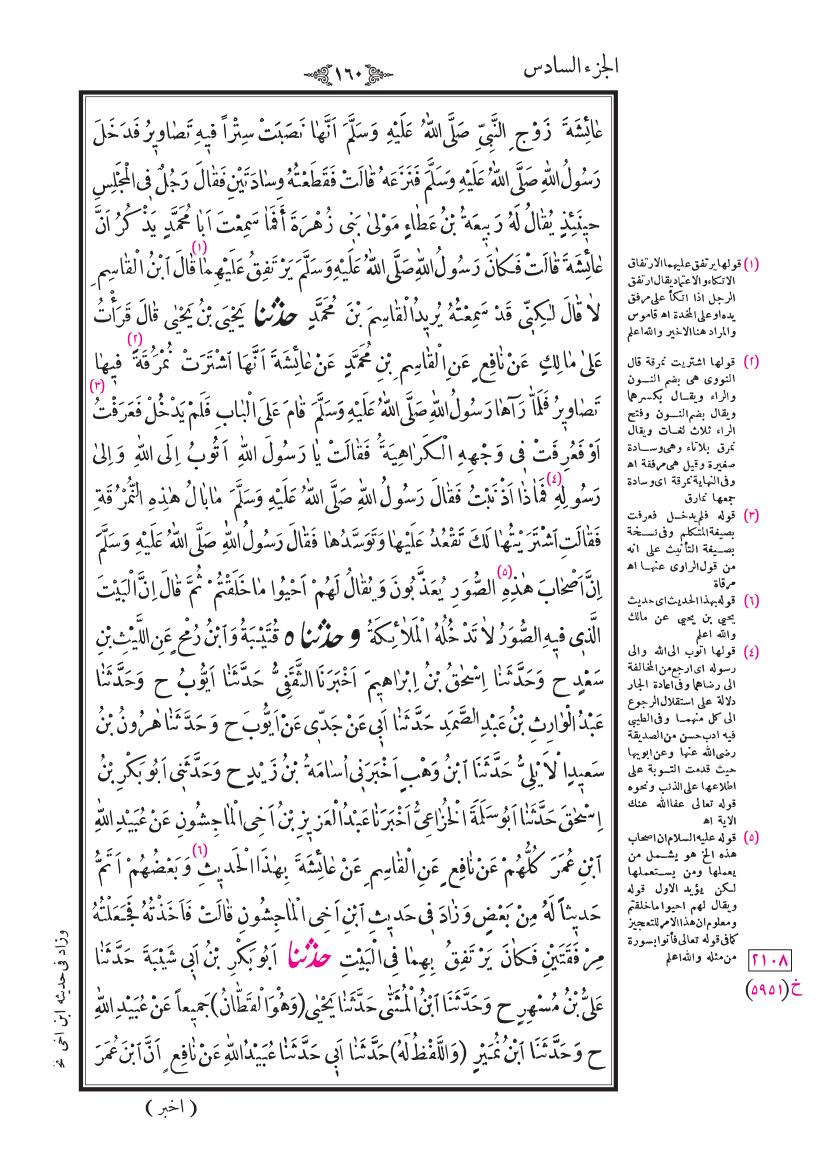 الجزء السادس
١٦٠
عَائِشَةَ زَوْجِ النَّبِيِّ صَلَّى اللهُ عَلَيْهِ وَسَلَّمَ اَنَّهَا نَصَبَتْ سِتْراً فِيهِ تَصَاوِيرُ فَدَخَلَ
رَسُولُ اللهِ صَلَّى اللهُ عَلَيْهِ وَسَلَّمَ فَنَزَعَهُ قَالَتْ فَقَطَعْتُهُ وِسَادَتَيْنِ فَقَالَ رَجُلٌ فِى الْمَجْلِسِ
حِينَئِذٍ يُقَالُ لَهُ رَبِيعَةُ بْنُ عَطَاءٍ مَوْلىٰ بَنِى زُهْرَةَ أَفَمَا سَمِعْتَ اَبَا مُحَمَّدٍ يَذْكُرُ اَنَّ
عَائِشَةَ قَالَتْ فَكَانَ رَسُولُ اللهِ صَلَّى اللهُ عَلَيْهِ وَسَلَّمَ يَرْتَفِقُ عَلَيْهِمَا (١) قَالَ ابْنُ الْقَاسِمِ
لَا قَالَ لٰكِنِّى قَدْ سَمِعْتُهُ يُرِيدُ الْقَاسِمَ بْنَ مُحَمَّدٍ حدثنا يَحْيَى بْنُ يَحْيٰى قَالَ قَرَأْتُ
عَلىٰ مَالِكٍ عَنْ نَافِعٍ عَنِ الْقَاسِمِ بْنِ مُحَمَّدٍ عَنْ عَائِشَةَ اَنَّهَا اشْتَرَتْ نُمْرُقَةً (٢) فِيهَا
تَصَاوِيرُ فَلَمَّا رَآهَا رَسُولُ اللهِ صَلَّى اللهُ عَلَيْهِ وَسَلَّمَ قَامَ عَلَى الْبَابِ فَلَمْ يَدْخُلْ فَعَرَفْتُ (٣)
اَوْ فَعُرِفَتْ فِى وَجْهِهِ الْكَرَاهِيَةُ فَقَالَتْ يَا رَسُولَ اللهِ اَتُوبُ اِلَى اللهِ وَاِلىٰ
رَسُولِهِ (٤) فَمَاذَا اَذْنَبْتُ فَقَالَ رَسُولُ اللهِ صَلَّى اللهُ عَلَيْهِ وَسَلَّمَ مَا بَالُ هٰذِهِ النُّمْرُقَةِ
فَقَالَتِ اشْتَرَيْتُهَا لَكَ تَقْعُدُ عَلَيْهَا وَتَوَسَّدُهَا فَقَالَ رَسُولُ اللهِ صَلَّى اللهُ عَلَيْهِ وَسَلَّمَ
اِنَّ اَصْحَابَ هٰذِهِ (٥) الصُّوَرِ يُعَذَّبُونَ وَيُقَالُ لَهُمْ اَحْيُوا مَا خَلَقْتُمْ ثُمَّ قَالَ اِنَّ الْبَيْتَ
الَّذِى فِيهِ الصُّوَرُ لَا تَدْخُلُهُ الْمَلَائِكَةُ و حدثناه قُتَيْبَةُ وَابْنُ رُمْحٍ عَنِ اللَّيْثِ بْنِ
سَعْدٍ ح وَحَدَّثَنَا اِسْحٰقُ بْنُ اِبْرَاهِيمَ اَخْبَرَنَا الثَّقَفِىُّ حَدَّثَنَا اَيُّوبُ ح وَحَدَّثَنَا
عَبْدُ الْوَارِثِ بْنُ عَبْدِ الصَّمَدِ حَدَّثَنَا اَبِى عَنْ جَدِّى عَنْ اَيُّوبَ ح وَحَدَّثَنَا هٰرُونُ بْنُ
سَعِيدٍ الْاَيْلِىُّ حَدَّثَنَا ابْنُ وَهْبٍ اَخْبَرَنِى اُسَامَةُ بْنُ زَيْدٍ ح وَحَدَّثَنِى اَبُو بَكْرِ بْنُ
اِسْحٰقَ حَدَّثَنَا اَبُو سَلَمَةَ الْخُزَاعِىُّ اَخْبَرَنَا عَبْدُ الْعَزِيزِ بْنُ اَخِى الْمَاجِشُونِ عَنْ عُبَيْدِ اللهِ
ابْنِ عُمَرَ كُلُّهُمْ عَنْ نَافِعٍ عَنِ الْقَاسِمِ عَنْ عَائِشَةَ بِهٰذَا الْحَدِيثِ (٦) وَبَعْضُهُمْ اَتَمُّ
حَدِيثاً لَهُ مِنْ بَعْضٍ وَزَادَ فِى حَدِيثِ ابْنِ اَخِى الْمَاجِشُونِ قَالَتْ فَاَخَذْتُهُ فَجَعَلْتُهُ
مِرْفَقَتَيْنِ فَكَانَ يَرْتَفِقُ بِهِمَا فِى الْبَيْتِ حدثنا اَبُو بَكْرِ بْنُ اَبِى شَيْبَةَ حَدَّثَنَا
عَلِىُّ بْنُ مُسْهِرٍ ح وَحَدَّثَنَا ابْنُ الْمُثَنّٰى حَدَّثَنَا يَحْيٰى (وَهُوَ الْقَطَّانُ) جَمِيعاً عَنْ عُبَيْدِ اللهِ
ح وَحَدَّثَنَا ابْنُ نُمَيْرٍ (وَاللَّفْظُ لَهُ) حَدَّثَنَا اَبِى حَدَّثَنَا عُبَيْدُ اللهِ عَنْ نَافِعٍ اَنَّ ابْنَ عُمَرَ
( اخبر )
(١) قولها يرتفق عليهما الارتفاق
الاتكاء والاعتماد يقال ارتفق
الرجل اذا اتكأ على مرفق
يده او على المخدة اه قاموس
والمراد هنا الاخير والله اعلم
(٢) قولها اشتريت نمرقة قال
النووى هى بضم النون
والراء ويقال بكسرهما
ويقال بضم النون وفتح
الراء ثلاث لغات ويقال
نمرق بلا تاء وهى وسادة
صغيرة وقيل هى مرفقة اه
وفى النهاية نمرقة اى وسادة
جمعها نمارق
(٣) قوله فلم يدخل فعرفت
بصيغة المتكلم وفى نسخة
بصيغة التأنيث على انه
من قول الراوى عنها اه
مرقاة
(٦) قوله بهذا الحديث اى حديث
يحيى بن يحيى عن مالك
والله اعلم
(٤) قولها اتوب الى الله والى
رسوله اى ارجع من المخالفة
الى رضاهما وفى اعادة الجار
دلالة على استقلال الرجوع
الى كل منهما وفى الطيبى
فيه ادب حسن من الصديقة
رضى الله عنها وعن ابويها
حيث قدمت التوبة على
اطلاعها على الذنب ونحوه
قوله تعالى عفا الله عنك
الاية اه
(٥) قوله عليه السلام ان اصحاب
هذه الخ هو يشمل من
يعملها ومن يستعملها
لكن يؤيد الاول قوله
ويقال لهم احيوا ما خلقتم
ومعلوم ان هذا الامر للتعجيز
كما فى قوله تعالى فأتوا بسورة
من مثله والله اعلم
٢١٠٨
خ (٥٩٥١)
وزاد فى حديثه ابن اخى نخ